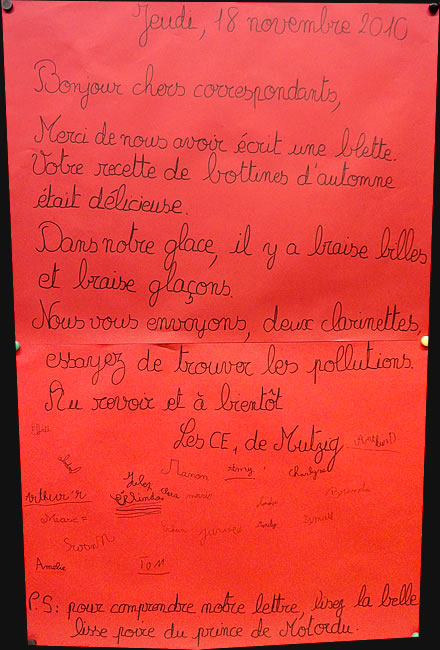 Jeudi, 18 novembre 2010
Bonjour chers correspondants,
Merci de nous avoir écrit une blette.
Votre recette de bottines d'automne
était délicieuse.
Dans notre glace, il y a braise billes
et braise glaçons.
Nous vous envoyons, deux clarinettes,
essayez de trouver les pollutions.
Au revoir et à bientôt
Les CE1 de Mutzig
Manon
Arthur'R
Célinda
Clara marie
Swann
Amélie
Tom
P.S: pour comprendre notre lettre, lisez la belle
lisse poire du prince de Motordu.